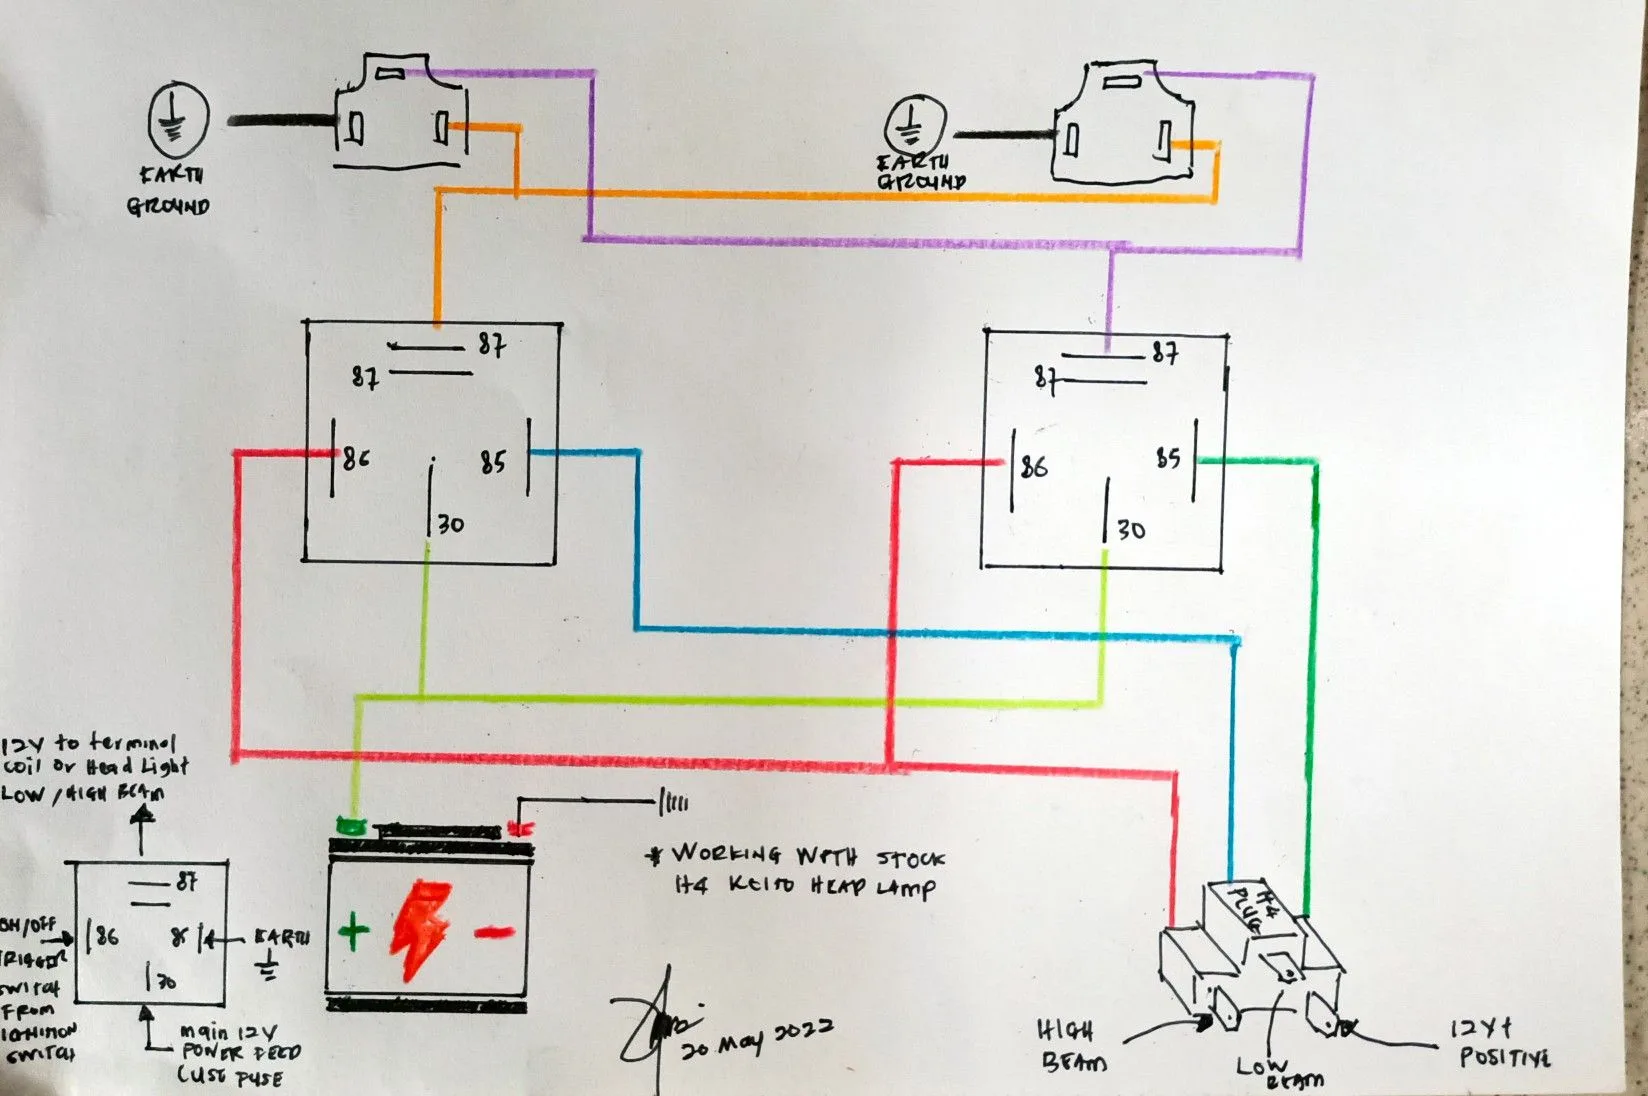 EARTH
GROUND
EARTH
GROUND
87
87
86
85
30
87
87
86
85
30
12V to terminal
coil or Head Light
LOW / HIGH BEAM
87
86
85
30
ON/OFF
TRIGGER
SWITCH
FROM
IGNITION
SWITCH
EARTH
main 12V
POWER FEED
(USE FUSE
+
-
* WORKING WITH STOCK
H4 KEITO HEAD LAMP
20 May 2022
H4
PLUG
HIGH
BEAM
LOW
BEAM
12V+
POSITIVE